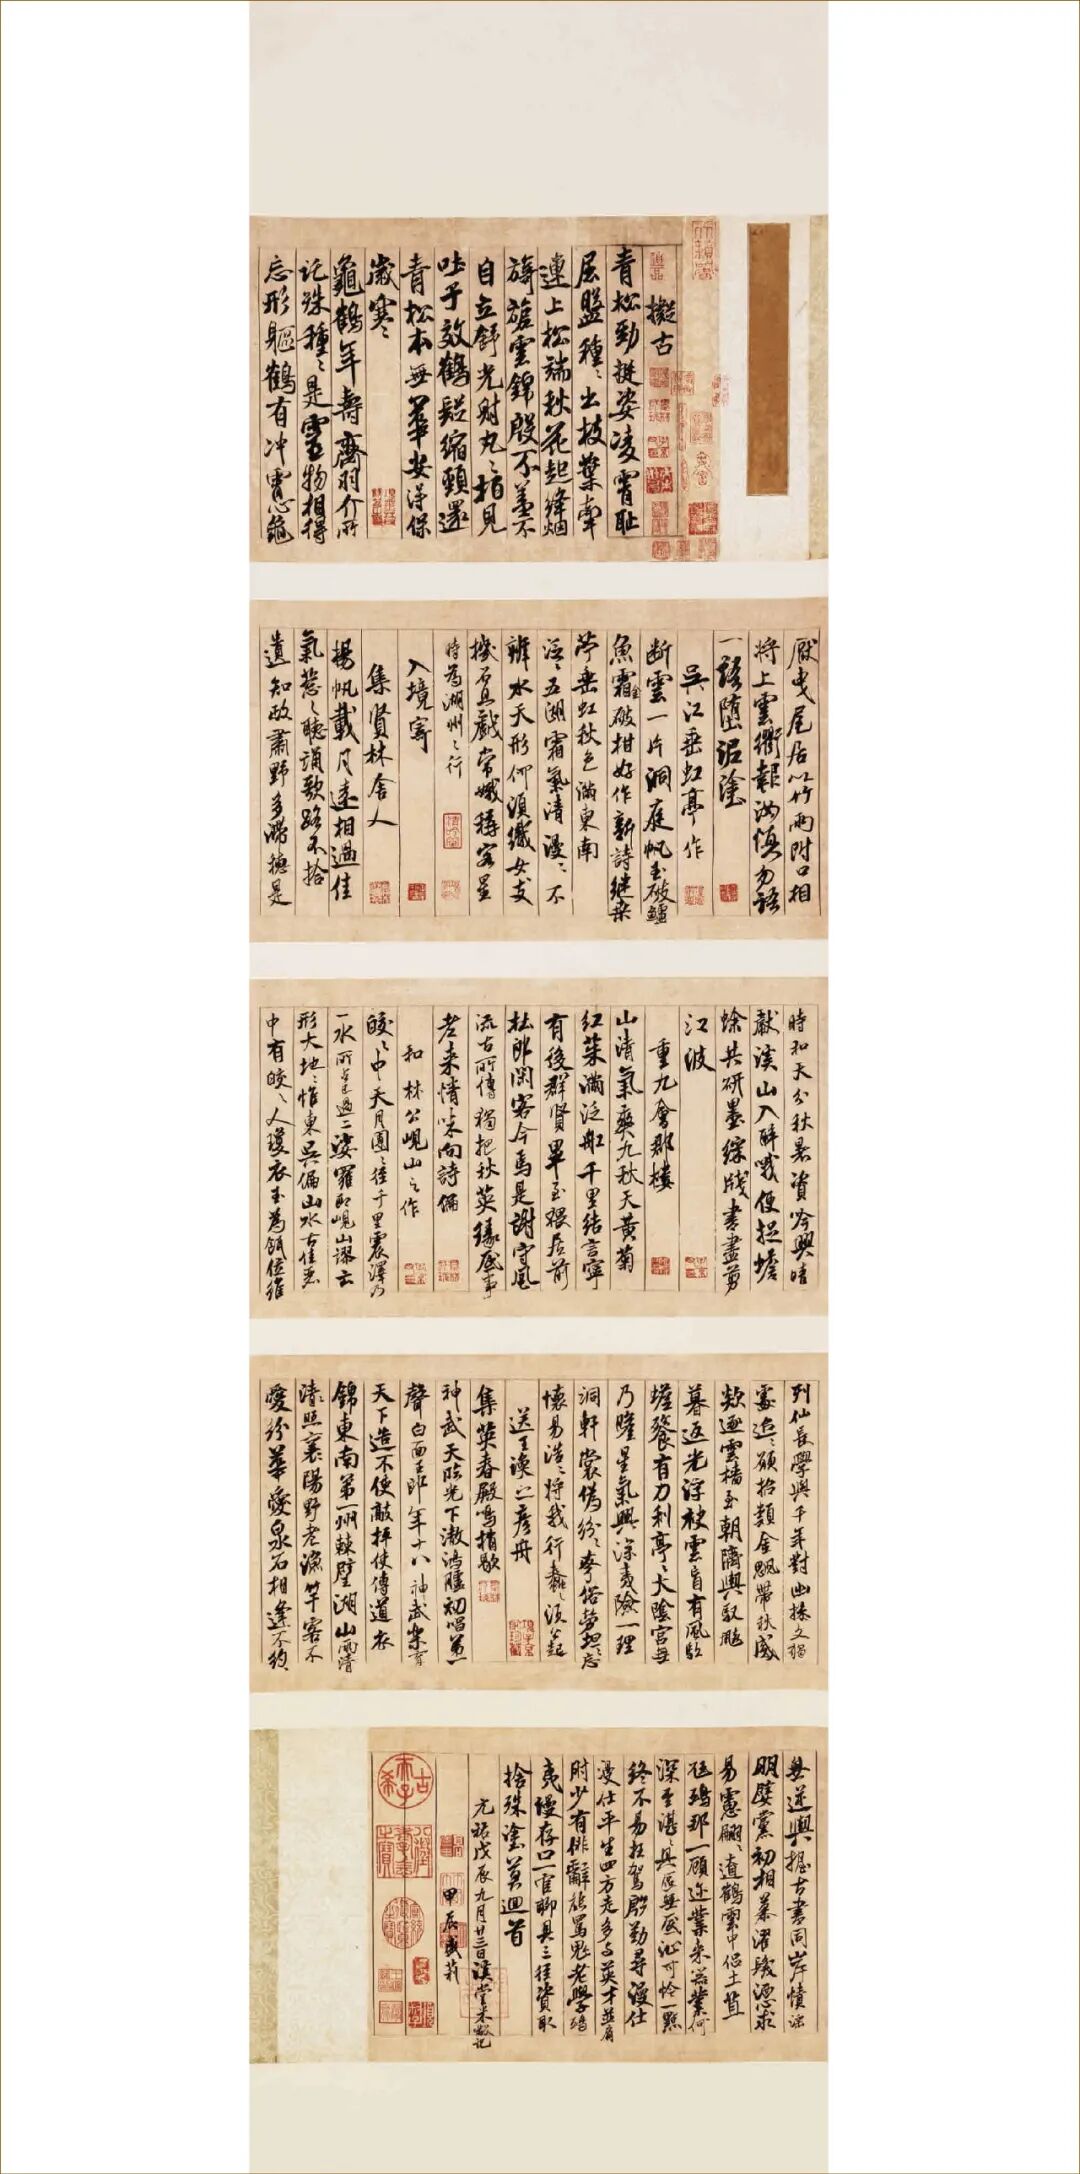 擬古
青松勁挺姿凌霄恥
屈盤種〻出枝葉牽
連上松端秋花起絳烟
旖旎雲錦殷不羞不
自立舒光射丸〻栢見
吐子效鶴疑縮頸還
青松本無華安得保
歲寒
龜鶴年壽齊羽介所
託殊種〻是靈物相得
忘形軀鶴有冲霄心龜
厭曳尾居以竹兩附口相
將上雲衢報汝慎勿語
一語墮泥塗
吳江垂虹亭作
断雲一片洞庭帆玉破鱸
魚霜破柑好作新詩継桑
苧垂虹秋色滿東南
泛〻五湖霜氣清漫〻不
辨水天形何須織女支
機石且戲常娥稱客星
時為湖州之行
入境寄
集賢林舍人
揚帆載月遠相過佳
氣葱〻聽誦歌路不拾
遺知政肅野多滯穗是
時和天分秋暑資吟興晴
獻溪山入醉哦便捉蟾
蜍共研墨綵牋書盡剪
江波
重九會郡樓
山清氣爽九秋天黃菊
紅茱滿泛船千里結言寧
有後群賢畢至猥居前
杜郎閑客今焉是謝守風
流古所傳獨把秋英緣底事
老来情味向詩偏
和林公峴山之作
皎〻中天月團〻徑千里震澤乃
一水所占已過二娑羅即峴山謬云
形大地〻惟東吳偏山水古佳麗
中有皎〻人瓊衣玉為餌位維
列仙長學與千年對幽操久獨
處迢〻願招類金飈帶秋威
欻逐雲檣至朝隮輿馭飈
暮返光浮袂雲盲有風馭
蟾餮有刀利亭〻太陰宮無
乃瞻星氣興深夷險一理
洞軒裳偽紛〻夸俗勞坦〻忘
懷易浩〻將我行蠢〻須公起
送王渙之彥舟
集英春殿鳴梢歇
神武天臨光下澈鴻臚初唱第一
聲白面王郎年十八神武樂育
天下造不使敲枰使傳道衣
錦東南第一州棘壁湖山兩清
清照襄陽野老漁竿客不
愛紛華愛泉石相逢不約
無逆輿握古書同岸幘淫
朋嬖黨初相慕濯髮洒心求
易慮翩〻遼鶴雲中侣土苴
尫鴟那一顧邇業来器業何
深至湛〻具區無底沚可怜一點
終不易枉駕殷勤尋漫仕
漫仕平生四方走多与英才並肩
肘少有俳辭能罵鬼老學鴟
夷漫存口一官聊具三徑資取
捨殊塗莫迴首
元祐戊辰九月廿三日溪堂米黻記
甲辰